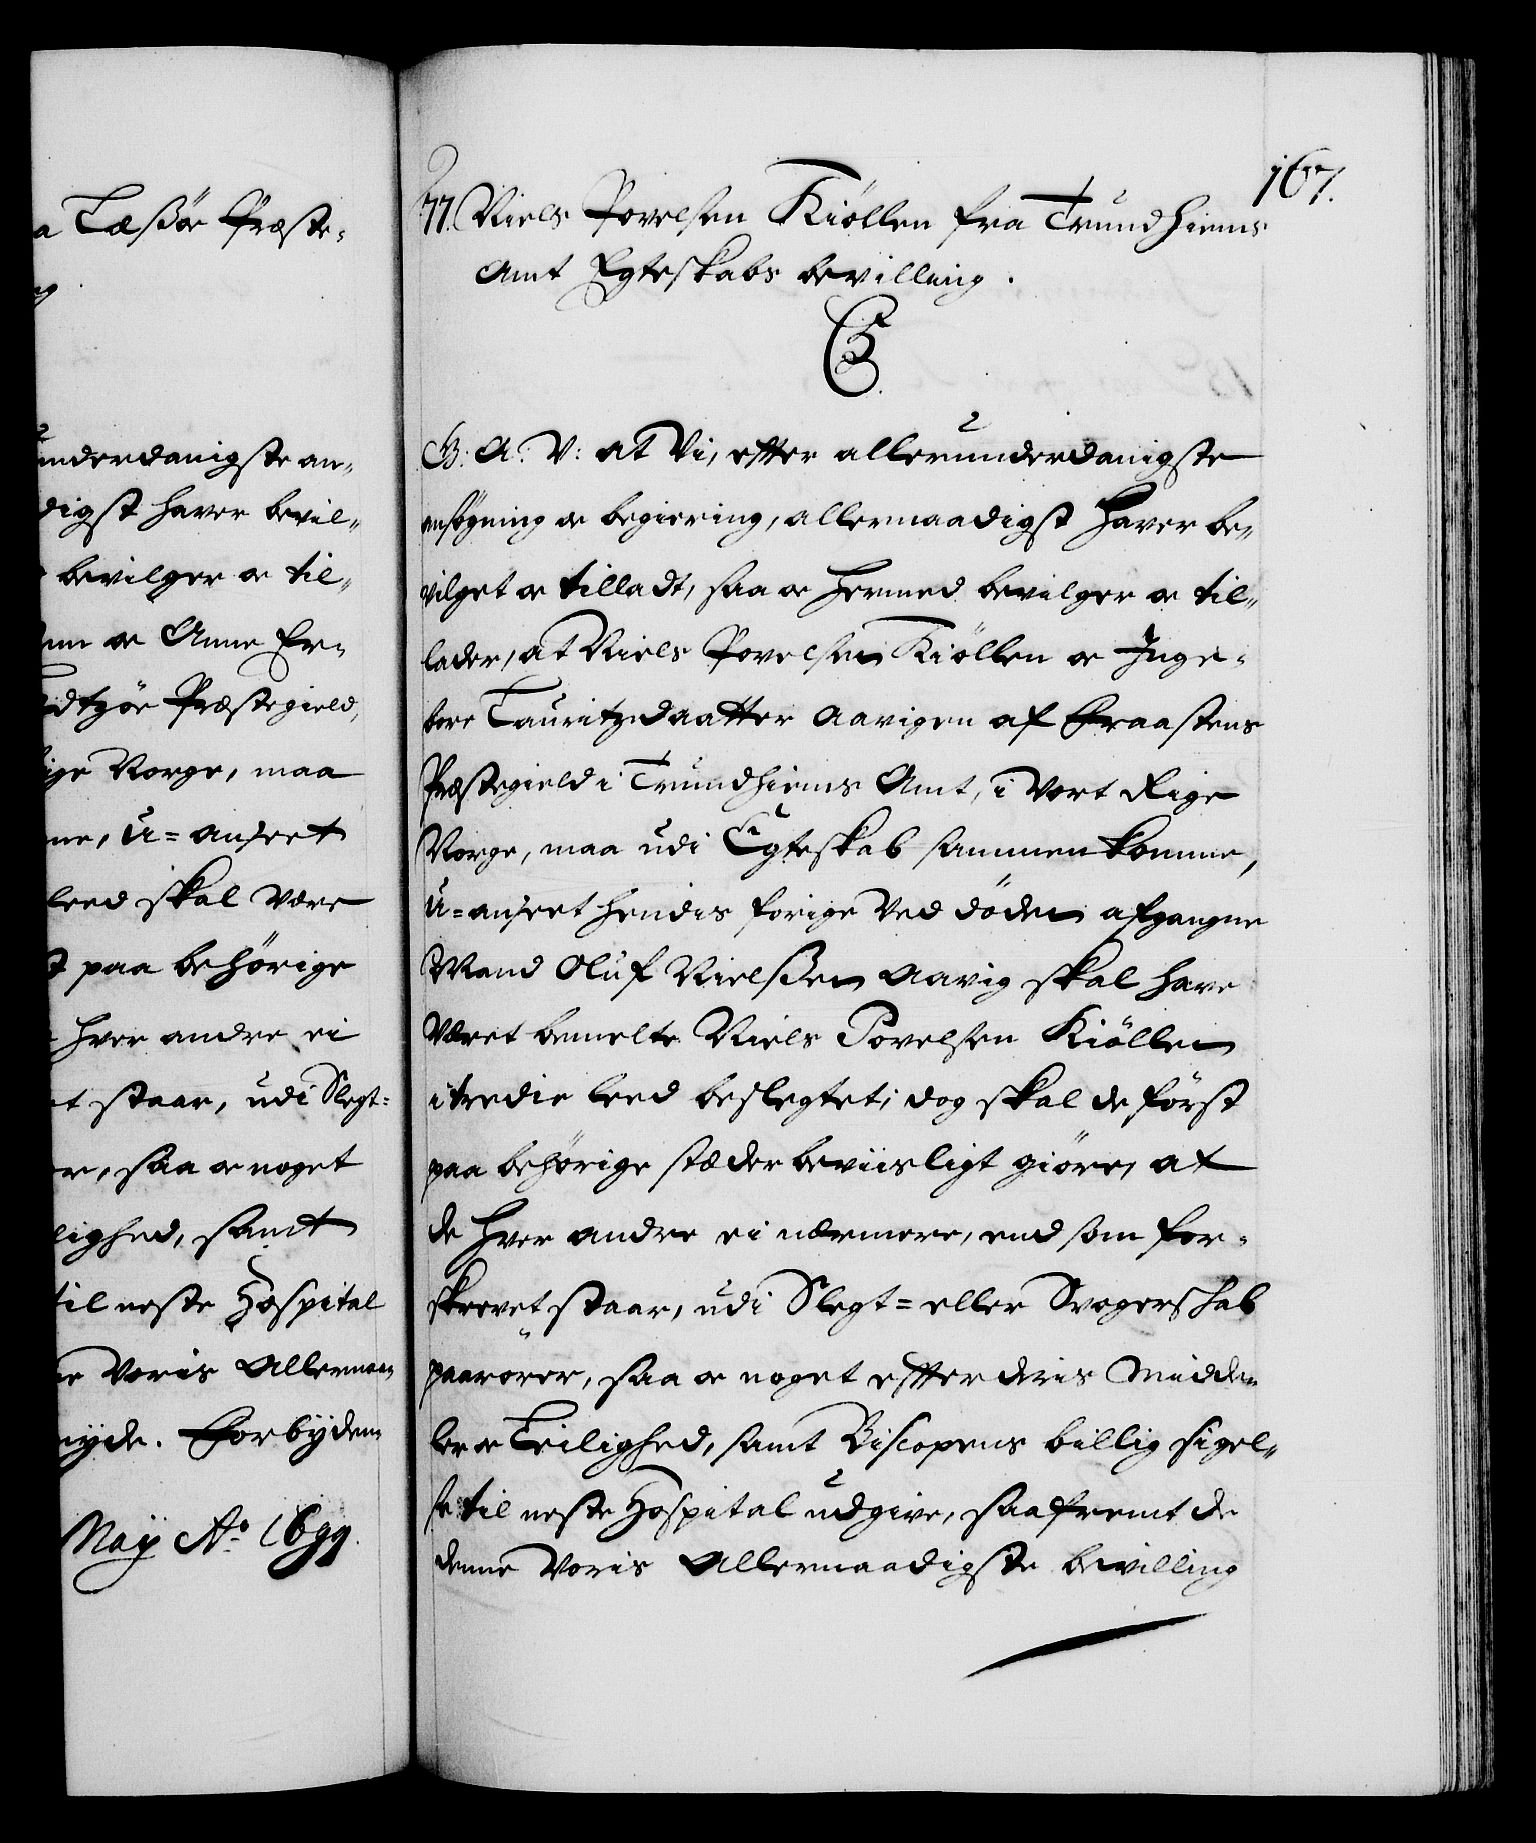 a Læssøe Præste-
ng
underdanigste an-
digst haver bevil-
bevilger oc til-
oc Anne Er-
Præstegield,
ige Norge, maa
ne, u=anseet
leed skal være
t paa behörige
hver andre ei
et staar, udi Slegt=
er, saa oc noget
lighed, samt
til neste Hospital
ne Voris Allernaa-
nyde. Forbydende
Maÿ Ao 1699.
167.
77. Niels Povelsen Kiöllen fra Trundhiems
Amt Egteskabs bevilling.
C5
G: A: V: at Vi, efter allerunderdanigste
ansögning oc begiering, allernaadigst haver be-
vilget oc tilladt, saa oc hermed bevilger oc til-
lader, at Niels Povelsen Kiöllen oc Inge-
bore Lauritzdaatter Aavigen af Fraastens
Præstegield i Trundhiems Amt, i Vort Rige
Norge, maa udi Egteskab sammenkomme,
u=anseet hendis forige Ved döden afgangne
Mand Oluf Nielssen Aavig skal have
Været bemelte Niels Povelsen Kiöllen
i tredie leed beslegtet; dog skal de först
paa behörige stæder beviisligt giöre, at
de hver andre ei nærmere, end som for-
skrevet staar, udi Slegt= eller Svogerskab
paarörer, saa oc noget efter deris Midde-
ler oc Leilighed, samt Biscopens billig sigel-
se til neste Hospital udgive, saafremt de
denne Voris Allernaadigste bevilling